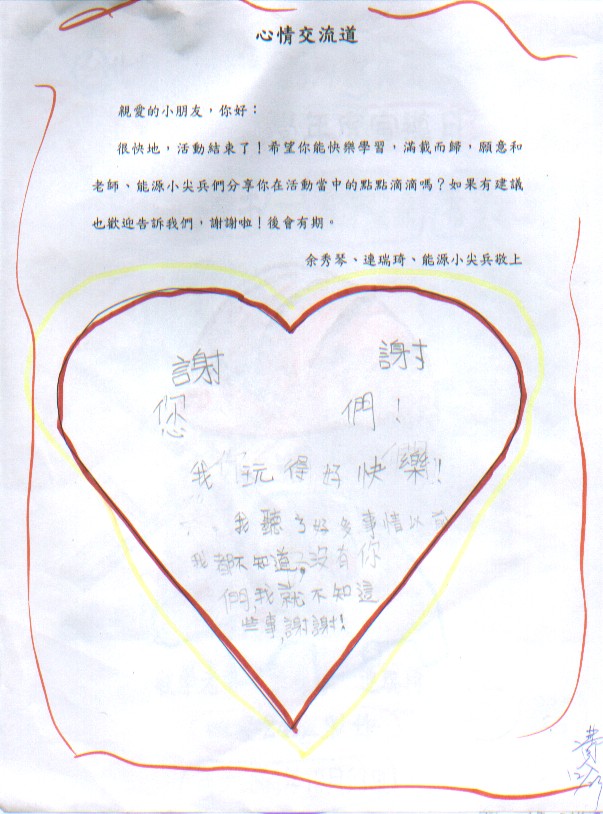 心情交流道
親愛的小朋友，你好：
很快地，活動結束了！希望你能快樂學習，滿載而歸，願意和
老師、能源小尖兵們分享你在活動當中的點點滴滴嗎？如果有建議
也歡迎告訴我們，謝謝啦！後會有期。
余秀琴、連瑞琦、能源小尖兵敬上
謝 謝
您 們！
我玩得好快樂！
我聽了好多事情以前
我都不知道，沒有你
們，我就不知道
些事，謝謝！
12/29